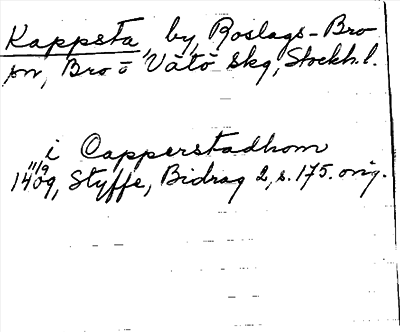 Kappsta, by, Roslags-Bro
sn, Bro o Vätö skg, Stockh.l.
i Capperstadhom
11/9
1409, Styffe, Bidrag 2, s. 175. orig.